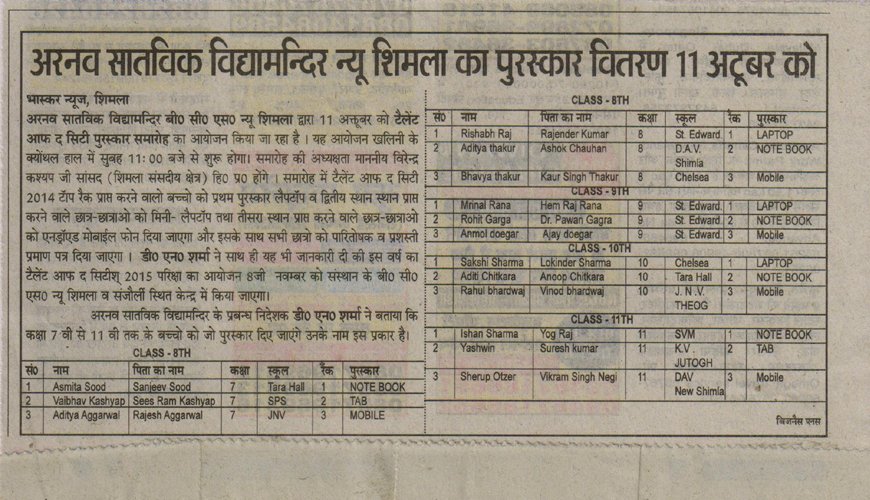 अरनव सातविक विद्यामन्दिर न्यू शिमला का पुरस्कार वितरण 11 अटूबर को
भास्कर न्यूज, शिमला
अरनव सातविक विद्यामन्दिर बी० सी० एस० न्यू शिमला द्वारा 11 अक्तूबर को टैलेंट
आफ द सिटी पुरस्कार समारोह का आयोजन किया जा रहा है । यह आयोजन खलिनी के
क्योंथल हाल में सुबह 11:00 बजे से शुरू होगा। समारोह की अध्यक्षता माननीय विरेन्द्र
कश्यप जी सांसद (शिमला संसदीय क्षेत्र) हि० प्र० होंगे । समारोह में टैलेंट आफ द सिटी
2014 टॉप रैंक प्राप्त करने वालो बच्चो को प्रथम पुरस्कार लैपटॉप व द्वितीय स्थान प्राप्त
करने वाले छात्र-छात्राओ को मिनी- लैपटॉप तथा तीसरा स्थान प्राप्त करने वाले छात्र-छात्राओ
को एनड्रॉएड मोबाईल फोन दिया जाएगा और इसके साथ सभी छात्रो को पारितोषक व प्रशस्ती
प्रमाण पत्र दिया जाएगा । डी० एन० शर्मा ने साथ ही यह भी जानकारी दी की इस वर्ष का
टैलेंट आफ द सिटीश् 2015 परिक्षा का आयोजन 8जी नवम्बर को संस्थान के बी० सी०
एस० न्यू शिमला व संजौर्ली स्थित केन्द्र में किया जाएगा।
अरनव सातविक विद्यामन्दिर के प्रबन्ध निदेशक डी० एन० शर्मा ने बताया कि
कक्षा 7 वी से 11 वी तक के बच्चो को जो पुरस्कार दिए जाएंगे उनके नाम इस प्रकार है।
CLASS - 8TH
सं० नाम पिता का नाम कक्षा स्कूल रैंक पुरस्कार
1 Asmita Sood Sanjeev Sood 7 Tara Hall 1 NOTE BOOK
2 Vaibhav Kashyap Sees Ram Kashyap 7 SPS 2 TAB
3 Aditya Aggarwal Rajesh Aggarwal 7 JNV 3 MOBILE
CLASS - 8TH
सं० नाम पिता का नाम कक्षा स्कूल रैंक पुरस्कार
1 Rishabh Raj Rajender Kumar 8 St. Edward 1 LAPTOP
2 Aditya thakur Ashok Chauhan 8 D.A.V. 2 NOTE BOOK
Shimla
3 Bhavya thakur Kaur Singh Thakur 8 Chelsea 3 Mobile
CLASS - 9TH
1 Mrinal Rana Hem Raj Rana 9 St. Edward 1 LAPTOP
2 Rohit Garga Dr. Pawan Gagra 9 St. Edward. 2 NOTE BOOK
3 Anmol doegar Ajay doegar 9 St. Edward. 3 Mobile
CLASS - 10TH
1 Sakshi Sharma Lokinder Sharma 10 Chelsea 1 LAPTOP
2 Aditi Chitkara Anoop Chitkara 10 Tara Hall 2 NOTE BOOK
3 Rahul bhardwaj Vinod bhardwaj 10 J. N.V. 3 Mobile
THEOG
CLASS - 11TH
1 Ishan Sharma Yog Raj 11 SVM 1 NOTE BOOK
2 Yashwin Suresh kumar 11 K.V. 2 TAB
JUTOGH
3 Sherup Otzer Vikram Singh Negi 11 DAV 3 Mobile
New Shimla
बिजनैस प्लस